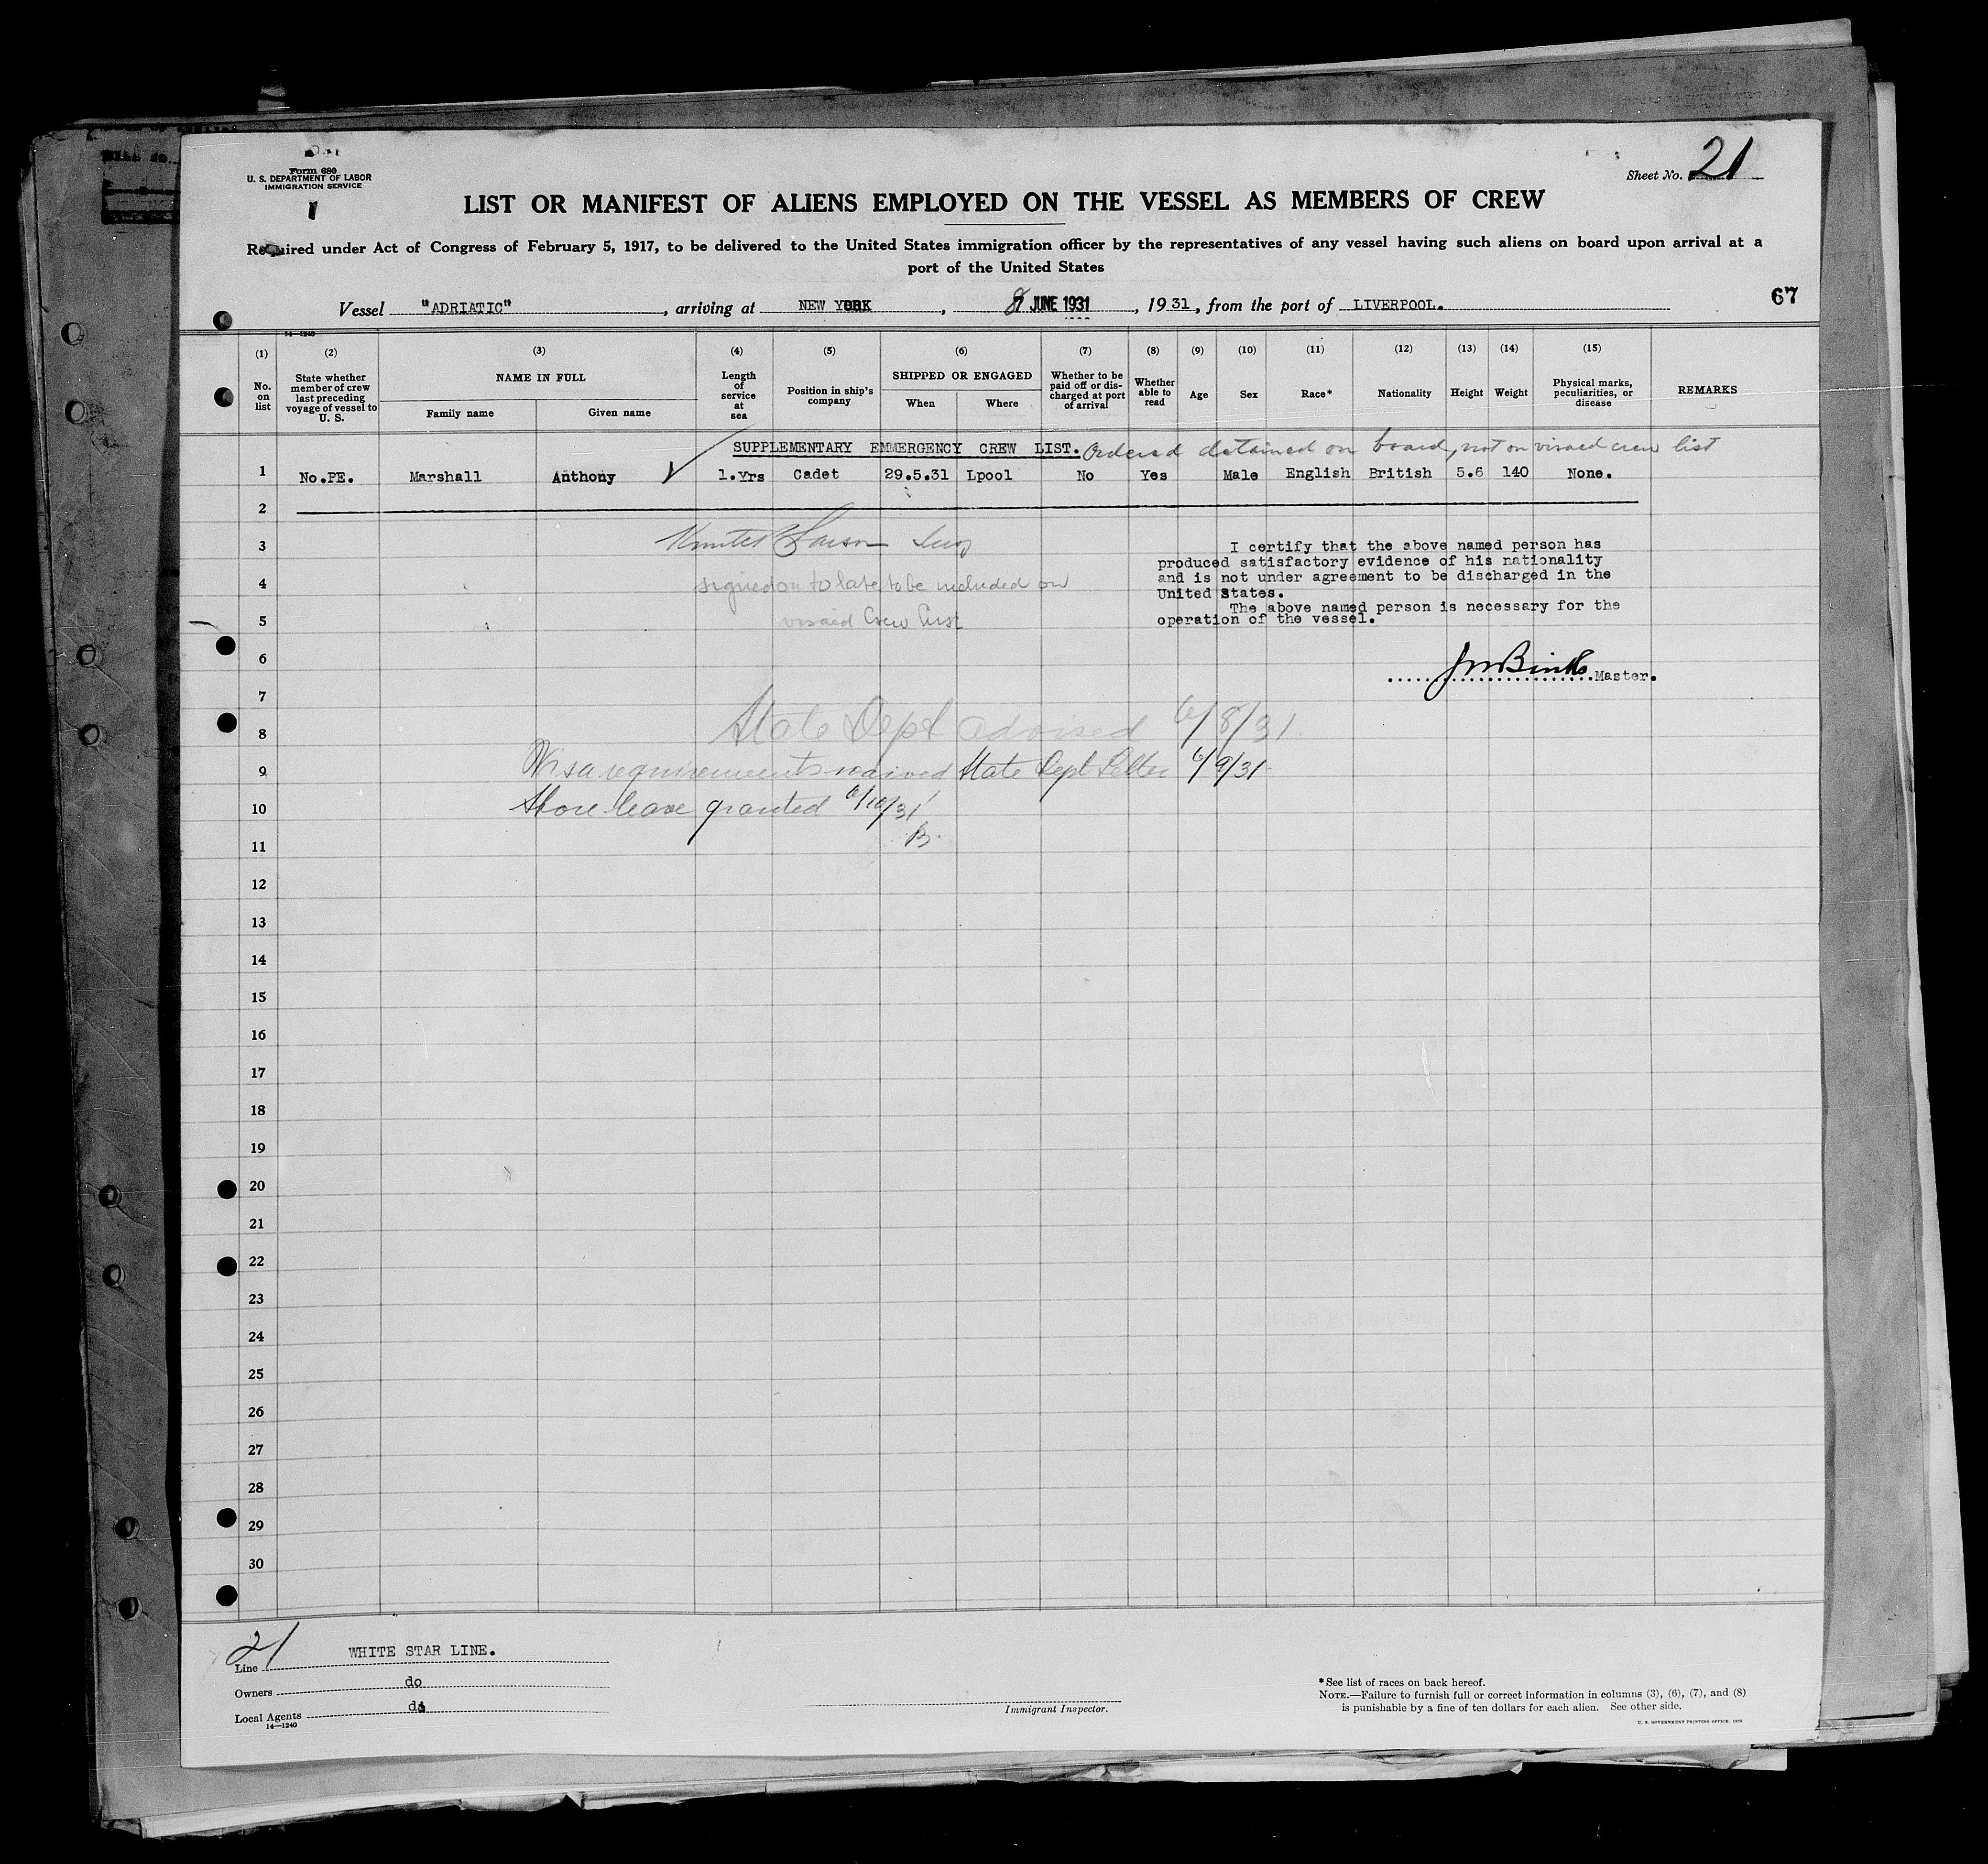 Form 680
U. S. DEPARTMENT OF LABOR
IMMIGRATION SERVICE
1
Sheet No. 21
LIST OR MANIFEST OF ALIENS EMPLOYED ON THE VESSEL AS MEMBERS OF CREW
Required under Act of Congress of February 5, 1917, to be delivered to the United States immigration officer by the representatives of any vessel having such aliens on board upon arrival at a
port of the United States
67
Vessel "ADRIATIC", arriving at NEW YORK, 8 JUNE 1931, 1931, from the port of LIVERPOOL.
14—1240
(1) (2) (3) (4) (5) (6) (7) (8) (9) (10) (11) (12) (13) (14) (15)
No. on list
State whether member of crew last preceding voyage of vessel to U. S.
NAME IN FULL
Family name
Given name
Length of service at sea
Position in ship's company
SHIPPED OR ENGAGED
When
Where
Whether to be paid off or discharged at port of arrival
Whether able to read
Age
Sex
Race*
Nationality
Height
Weight
Physical marks, peculiarities, or disease
REMARKS
SUPPLEMENTARY EMMERGENCY CREW LIST. Ordered detained on board, not on visaed crew list
1 No.PE. Marshall Anthony 1.Yrs Cadet 29.5.31 Lpool No Yes Male English British 5.6 140 None.
2
3
4 signed on to late to be included on
5 visaed Crew List
I certify that the above named person has
produced satisfactory evidence of his nationality
and is not under agreement to be discharged in the
United States.
The above named person is necessary for the
operation of the vessel.
6
Master.
7
8 State Dept advised 6/8/31
9 Visa requirements waived State Dept Letter 6/9/31
10 Shore leave granted 6/10/31
B.
11
12
13
14
15
16
17
18
19
20
21
22
23
24
25
26
27
28
29
30
21
Line WHITE STAR LINE.
Owners do
Local Agents do
14—1240
Immigrant Inspector.
*See list of races on back hereof.
NOTE.—Failure to furnish full or correct information in columns (3), (6), (7), and (8)
is punishable by a fine of ten dollars for each alien. See other side.